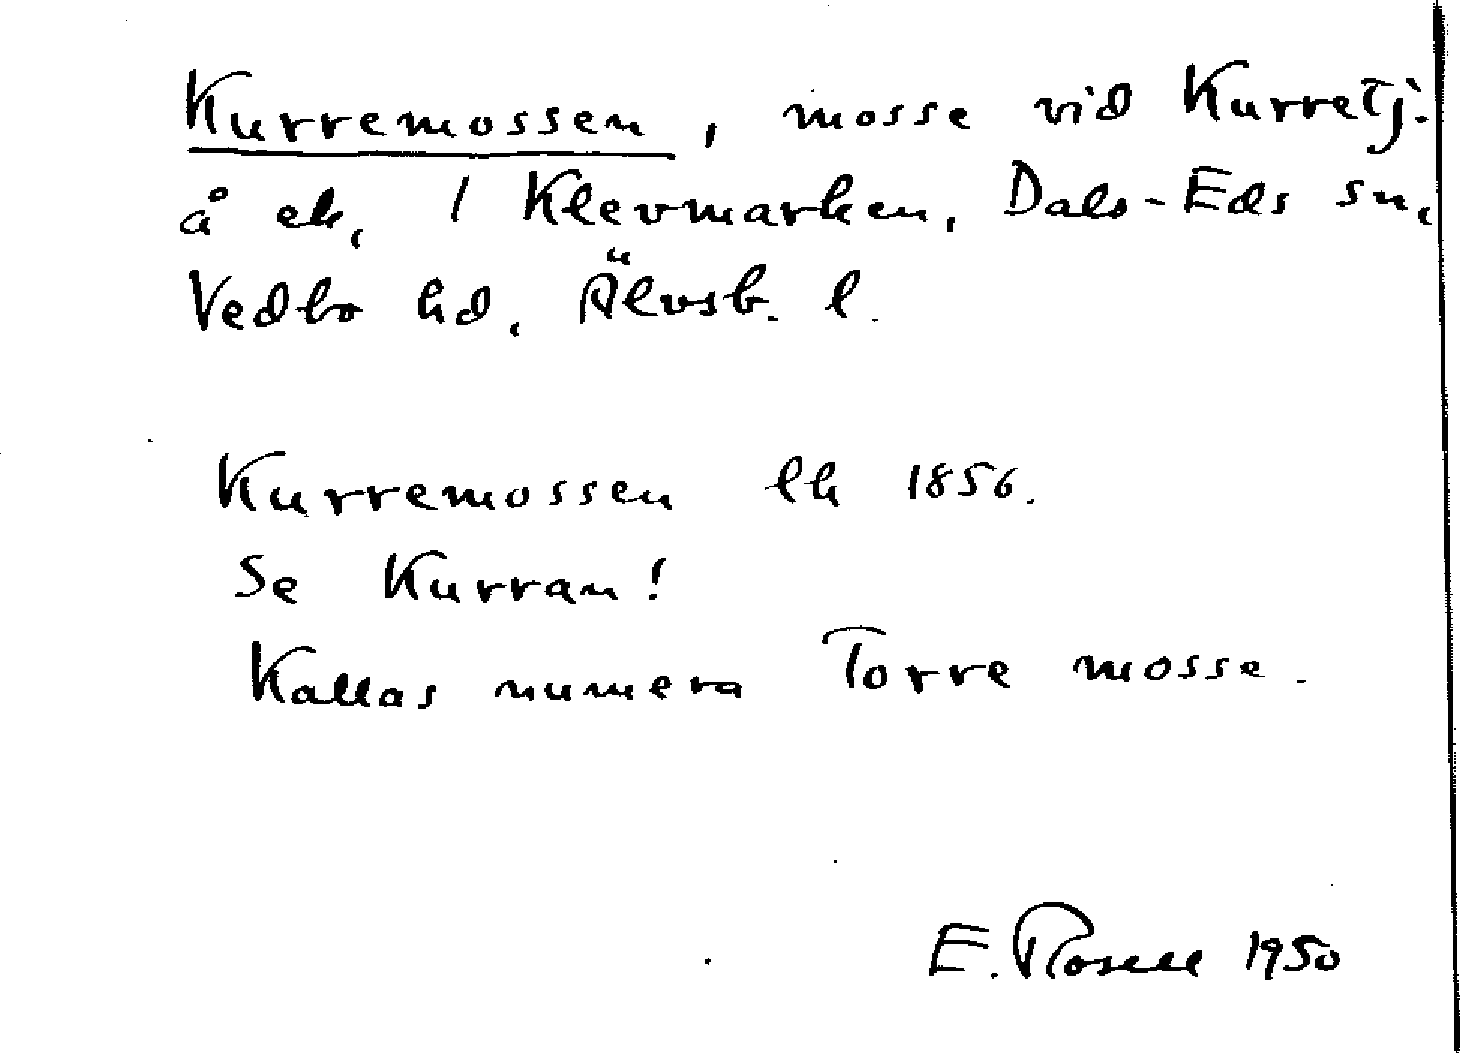 Kurremossen, mosse vid Kurretj.
å ek, / Klevmarken, Dals-Eds sn,
Vedbo hd, Älvsb. l.
Kurremossen lh 1856.
Se Kurran!
Kallas numera Torre mosse.
E. Rosell 1950